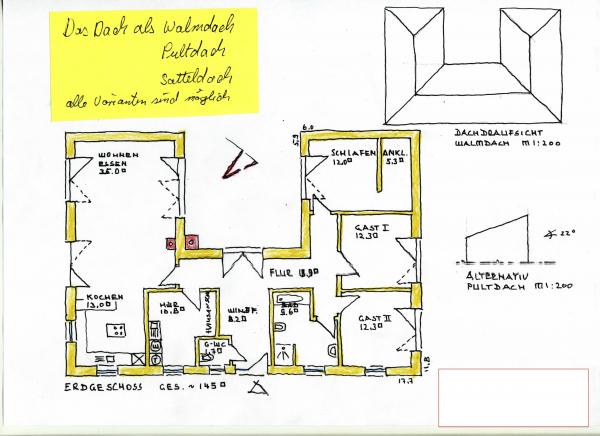 Das Dach als Walmdach
Pultdach
Satteldach
alle Varianten sind möglich
DACHDRAUFSICHT
WALMDACH M 1:200
6.0
5.9
WOHNEN
ESSEN
SCHLAFEN
12.0
ANKL.
5.3
GAST I
12.3
22°
FLUR
ALTERNATIV
PULTDACH M 1:200
KOCHEN
13.0
HWR
10.8
WINDF.
8.2
BAD
9.6
GAST II
12.3
G-WC
1.7
11.8
17.7
ERDGESCHOSS GES. ~ 145